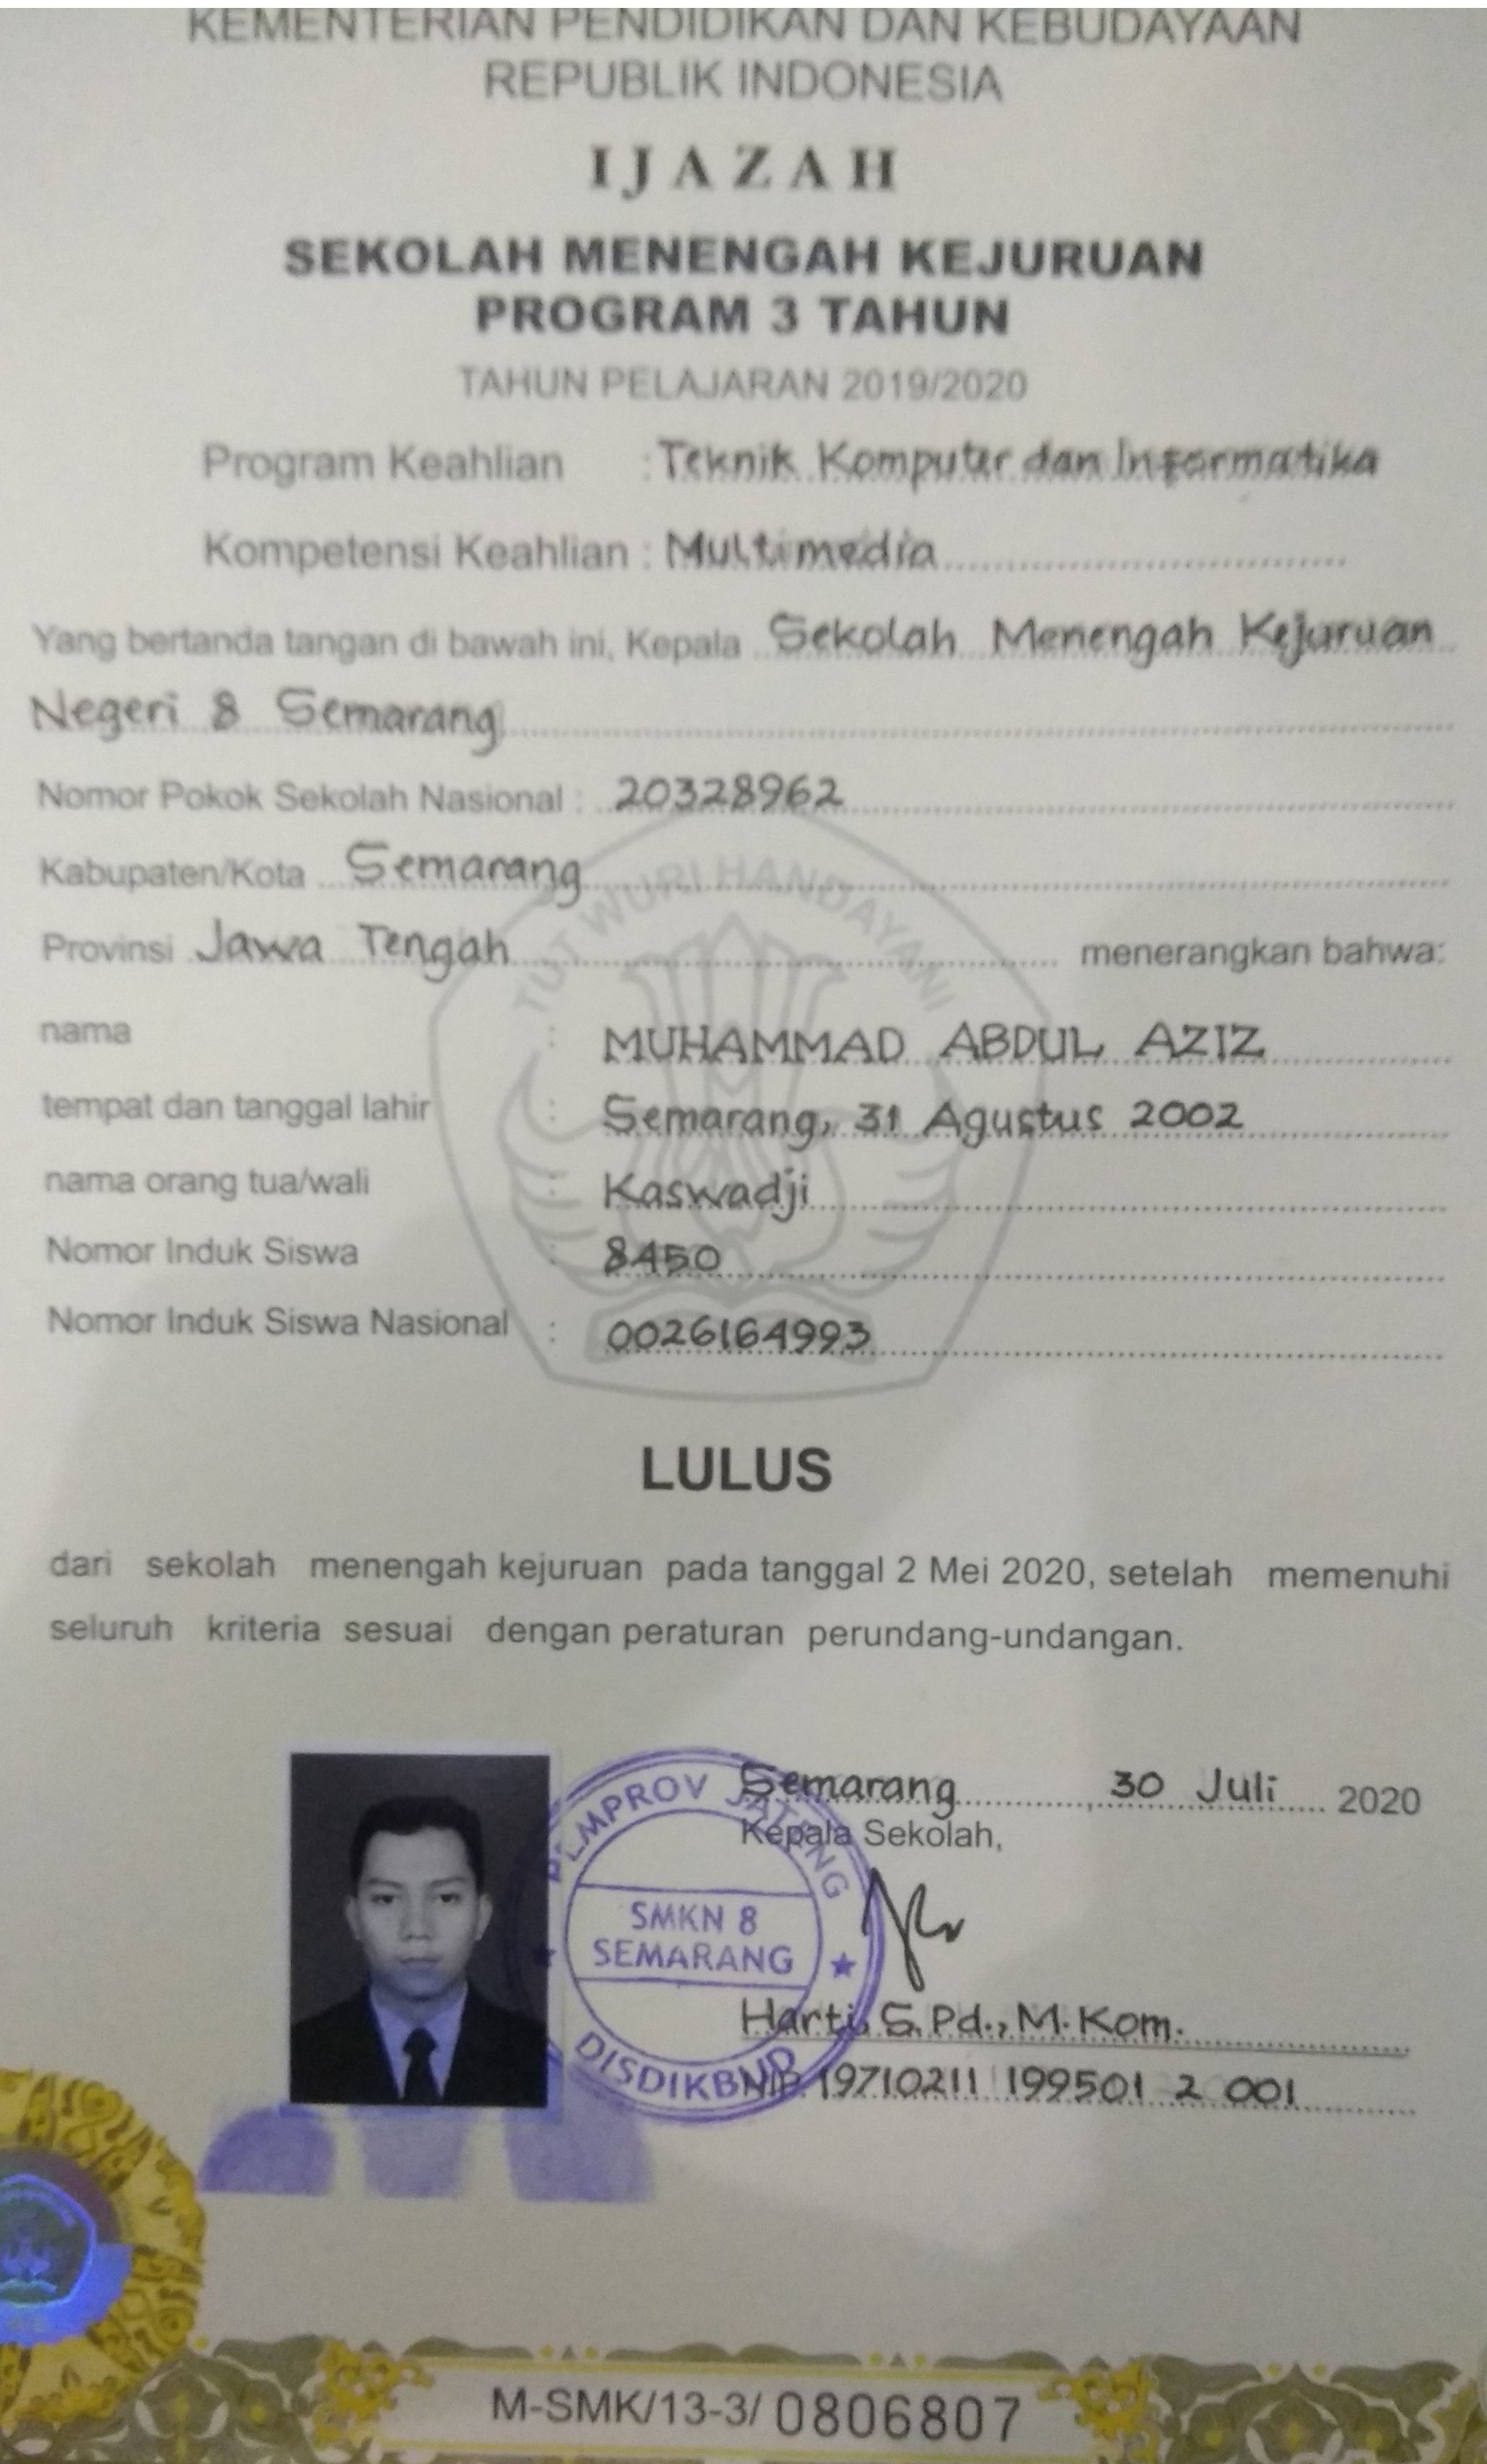 KEMENTERIAN PENDIDIKAN DAN KEBUDAYAAN
REPUBLIK INDONESIA
IJAZAH
SEKOLAH MENENGAH KEJURUAN
PROGRAM 3 TAHUN
TAHUN PELAJARAN 2019/2020
Program Keahlian : Teknik Komputer dan Informatika
Kompetensi Keahlian : Multimedia
Yang bertanda tangan di bawah ini, Kepala Sekolah Menengah Kejuruan
Negeri 8 Semarang
Nomor Pokok Sekolah Nasional : 20328962
Kabupaten/Kota Semarang
TUT WURI HANDAYANI
Provinsi Jawa Tengah menerangkan bahwa:
nama : MUHAMMAD ABDUL AZIZ
tempat dan tanggal lahir : Semarang, 31 Agustus 2002
nama orang tua/wali : Kaswadji
Nomor Induk Siswa : 8450
Nomor Induk Siswa Nasional : 0026164993
LULUS
dari sekolah menengah kejuruan pada tanggal 2 Mei 2020, setelah memenuhi
seluruh kriteria sesuai dengan peraturan perundang-undangan.
Semarang, 30 Juli 2020
Kepala Sekolah,
PEMPROV JATENG
SMKN 8
SEMARANG
DISDIKBUD
Harti, S.Pd., M.Kom.
NIP. 19710211 199501 2 001
M-SMK/13-3/ 0806807